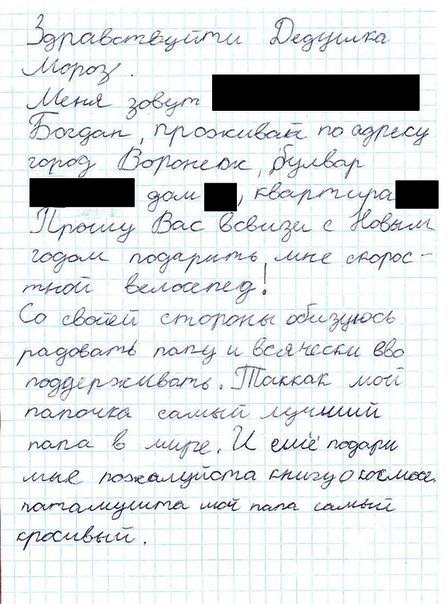 Здравствуйти Дедушка
Мороз.
Меня зовут
Богдан, проживаю по адресу
город Воронеж, булвар
дом , квартира
Прошу Вас всвизи с Новым
годом подарить мне скорос-
тной велосепед!
Со своей стороны обизуюсь
радовать папу и всячески ево
поддерживать. Таккак мой
папочка самый лучший
папа в мире. И ещё подари
мне пожалуйста книгу о космосе
патамушта мой папа самый
красивый.